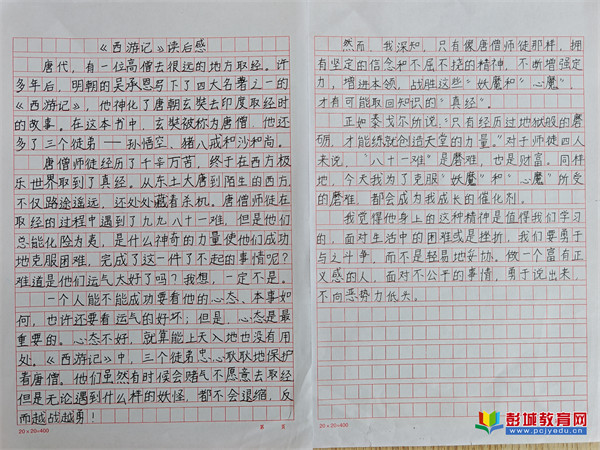 《西游记》读后感
唐代，有一位高僧去很远的地方取经。许
多年后，明朝的吴承恩写下了四大名著之一的
《西游记》，他神化了唐朝玄奘去印度取经时
的故事。在这本书中，玄奘被称为唐僧，他还
多了三个徒弟——孙悟空、猪八戒和沙和尚。
唐僧师徒经历了千辛万苦，终于在西方极
乐世界取到了真经。从东土大唐到陌生的西方，
不仅路途遥远，还处处藏着杀机。唐僧师徒在
取经的过程中遇到了九九八十一难，但是他们
总能化险为夷，是什么神奇的力量使他们成功
地克服困难，完成了这一件了不起的事情呢？
难道是他们运气太好了吗？我想，一定不是。
一个人能不能成功要看他的心态、本事如
何，也许还要看运气的好坏；但是，心态是最
重要的。心态不好，就算能上天入地也没有用
处。《西游记》中，三个徒弟忠心耿耿地保护
着唐僧。他们虽然有时候会赌气不愿意去取经
但是无论遇到什么样的妖怪，都不会退缩，反
而越战越勇！
20×20=400
然而，我深知，只有像唐僧师徒那样，拥
有坚定的信念和不屈不挠的精神，不断增强定
力，增进本领，战胜这些“妖魔”和“心魔”，
才有可能取回知识的“真经”。
正如泰戈尔所说：“只有经历过地狱般的磨
砺，才能练就创造天堂的力量。”对于师徒四人
来说，“八十一难”是磨难，也是财富。同样
地，今天我为了克服“妖魔”和“心魔”所受
的磨难，都会成为我成长的催化剂。
我觉得他身上的这种精神是值得我们学习
的，面对生活中的困难或是挫折，我们要勇于
与之斗争，而不是轻易地妥协。做一个富有正
义感的人，面对不公平的事情，勇于说出来，
不向恶势力低头。
20×20=400
彭城教育网
www.pcjyedu.cn